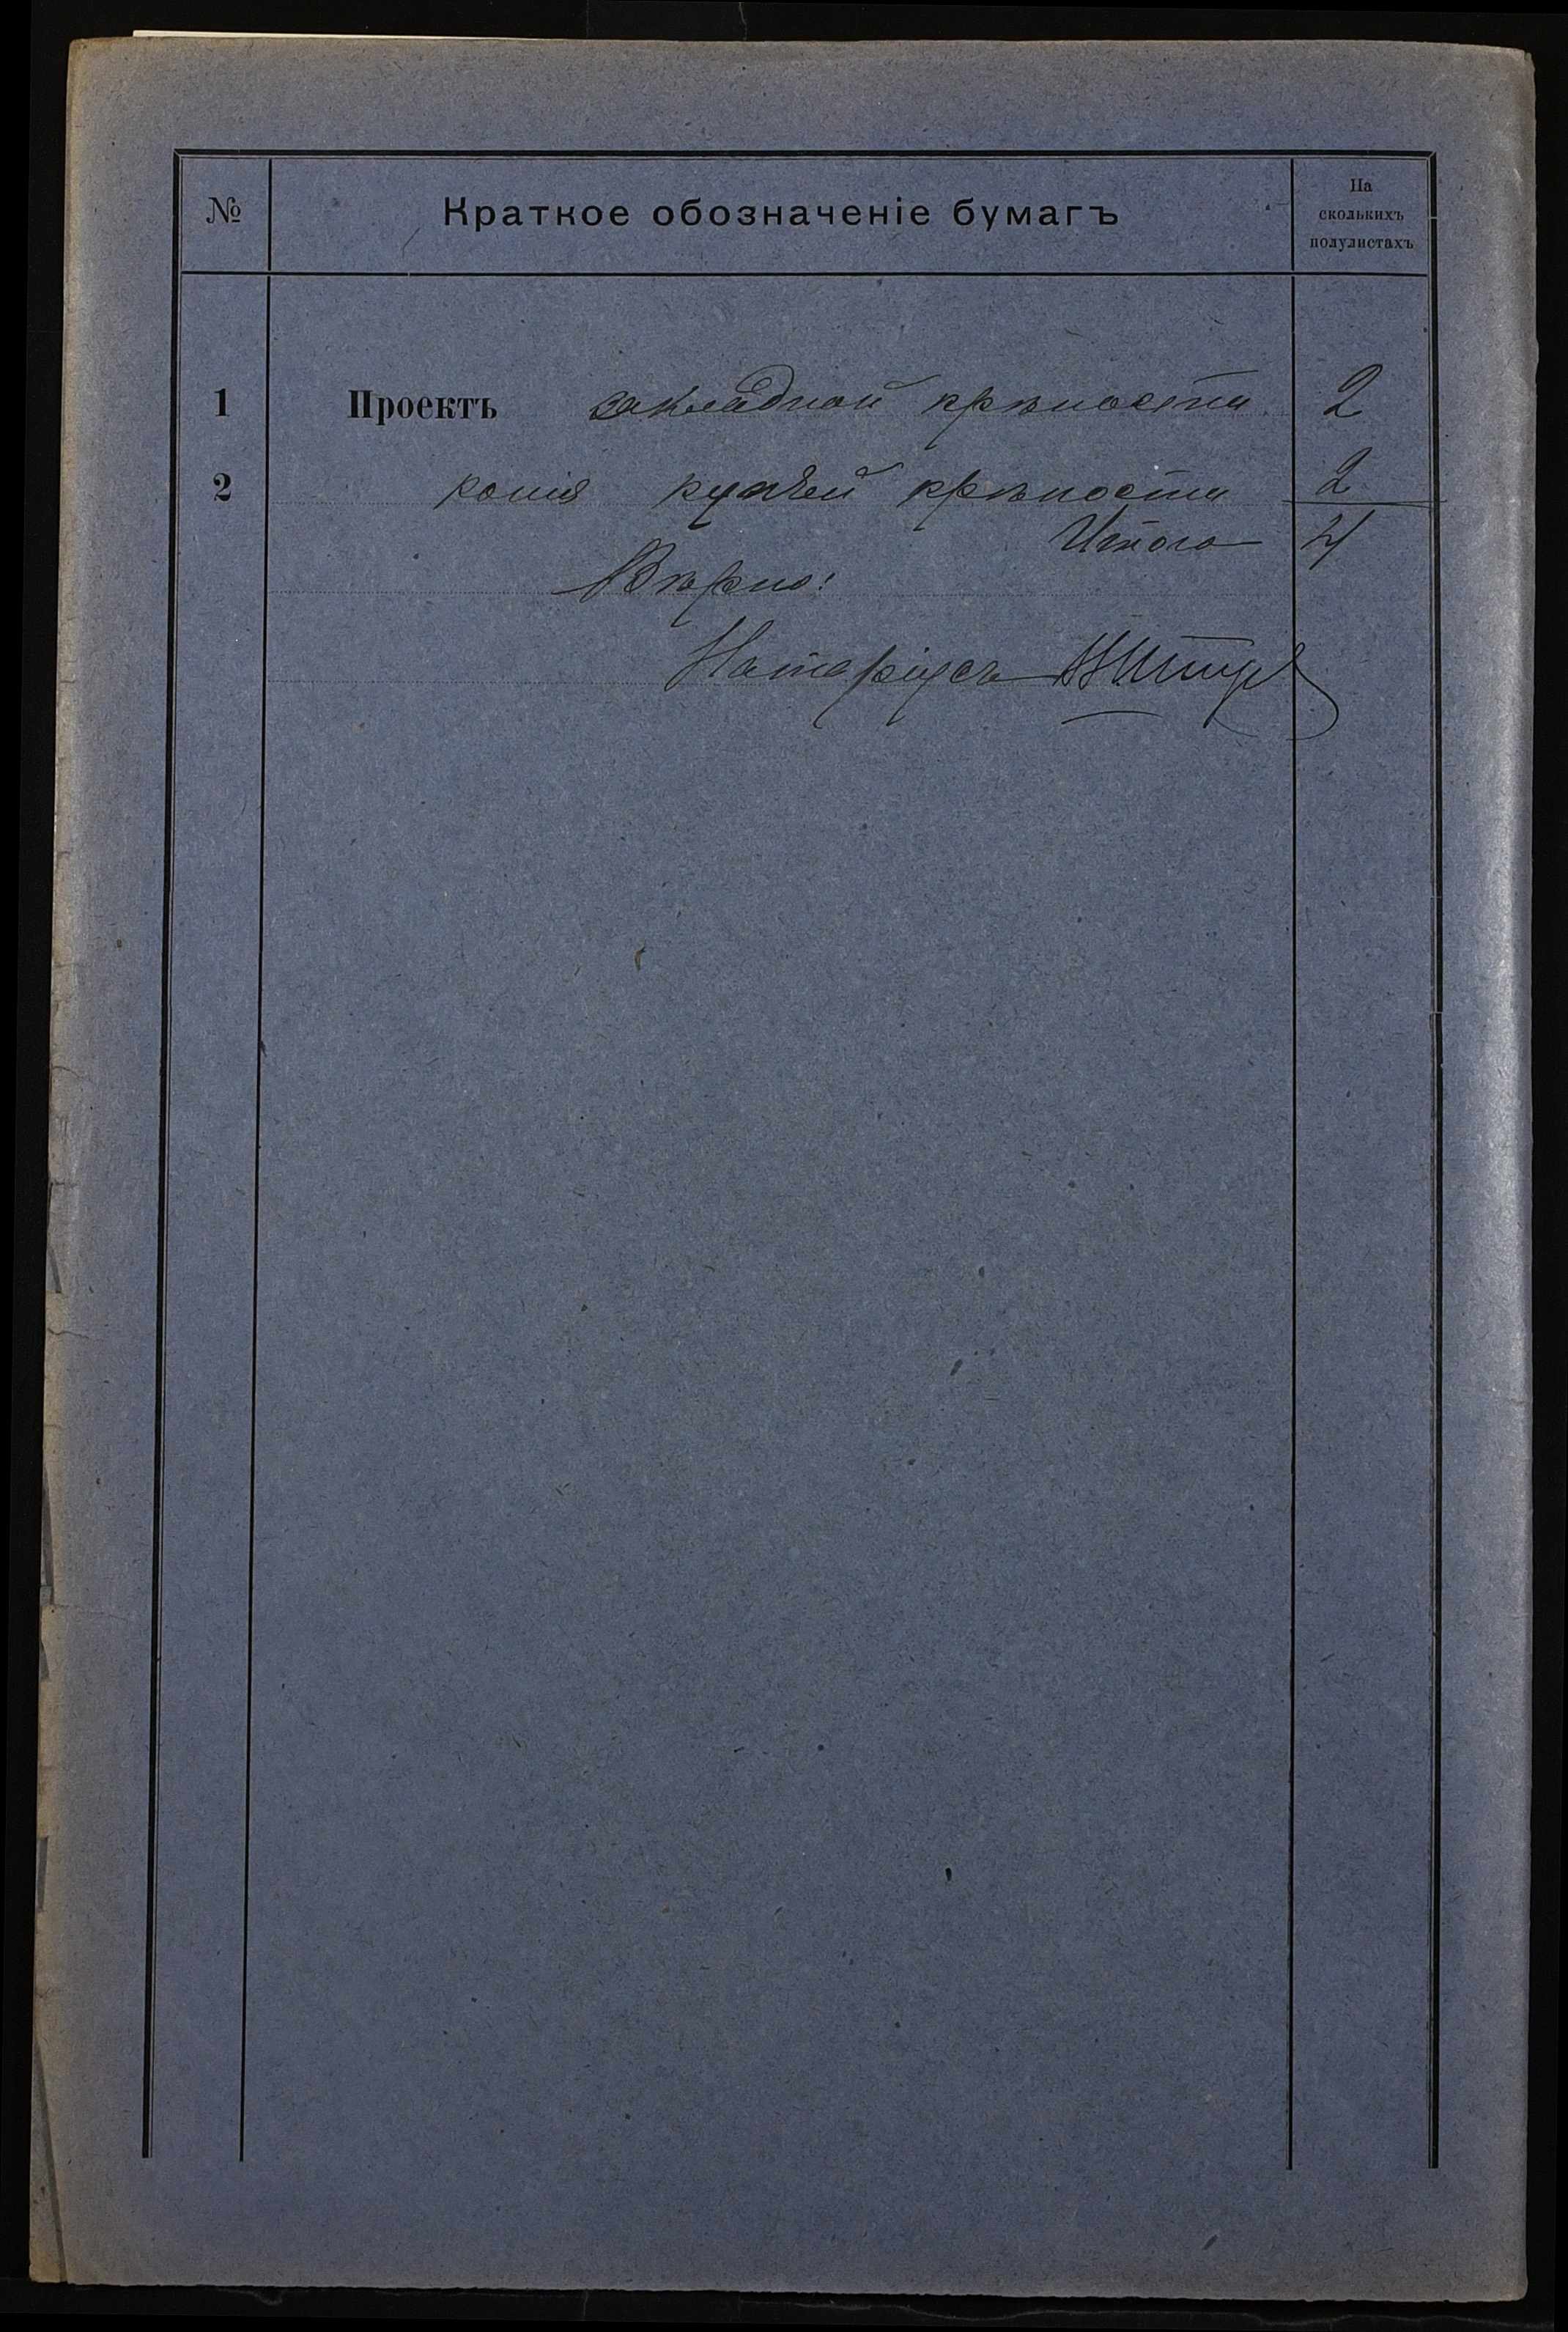 № Краткое обозначеніе бумагъ На сколькихъ полулистахъ
1 Проектъ закладной крѣпости 2
2 копія купчей крѣпости 2
Итого 4
Вѣрно!
Нотаріусъ